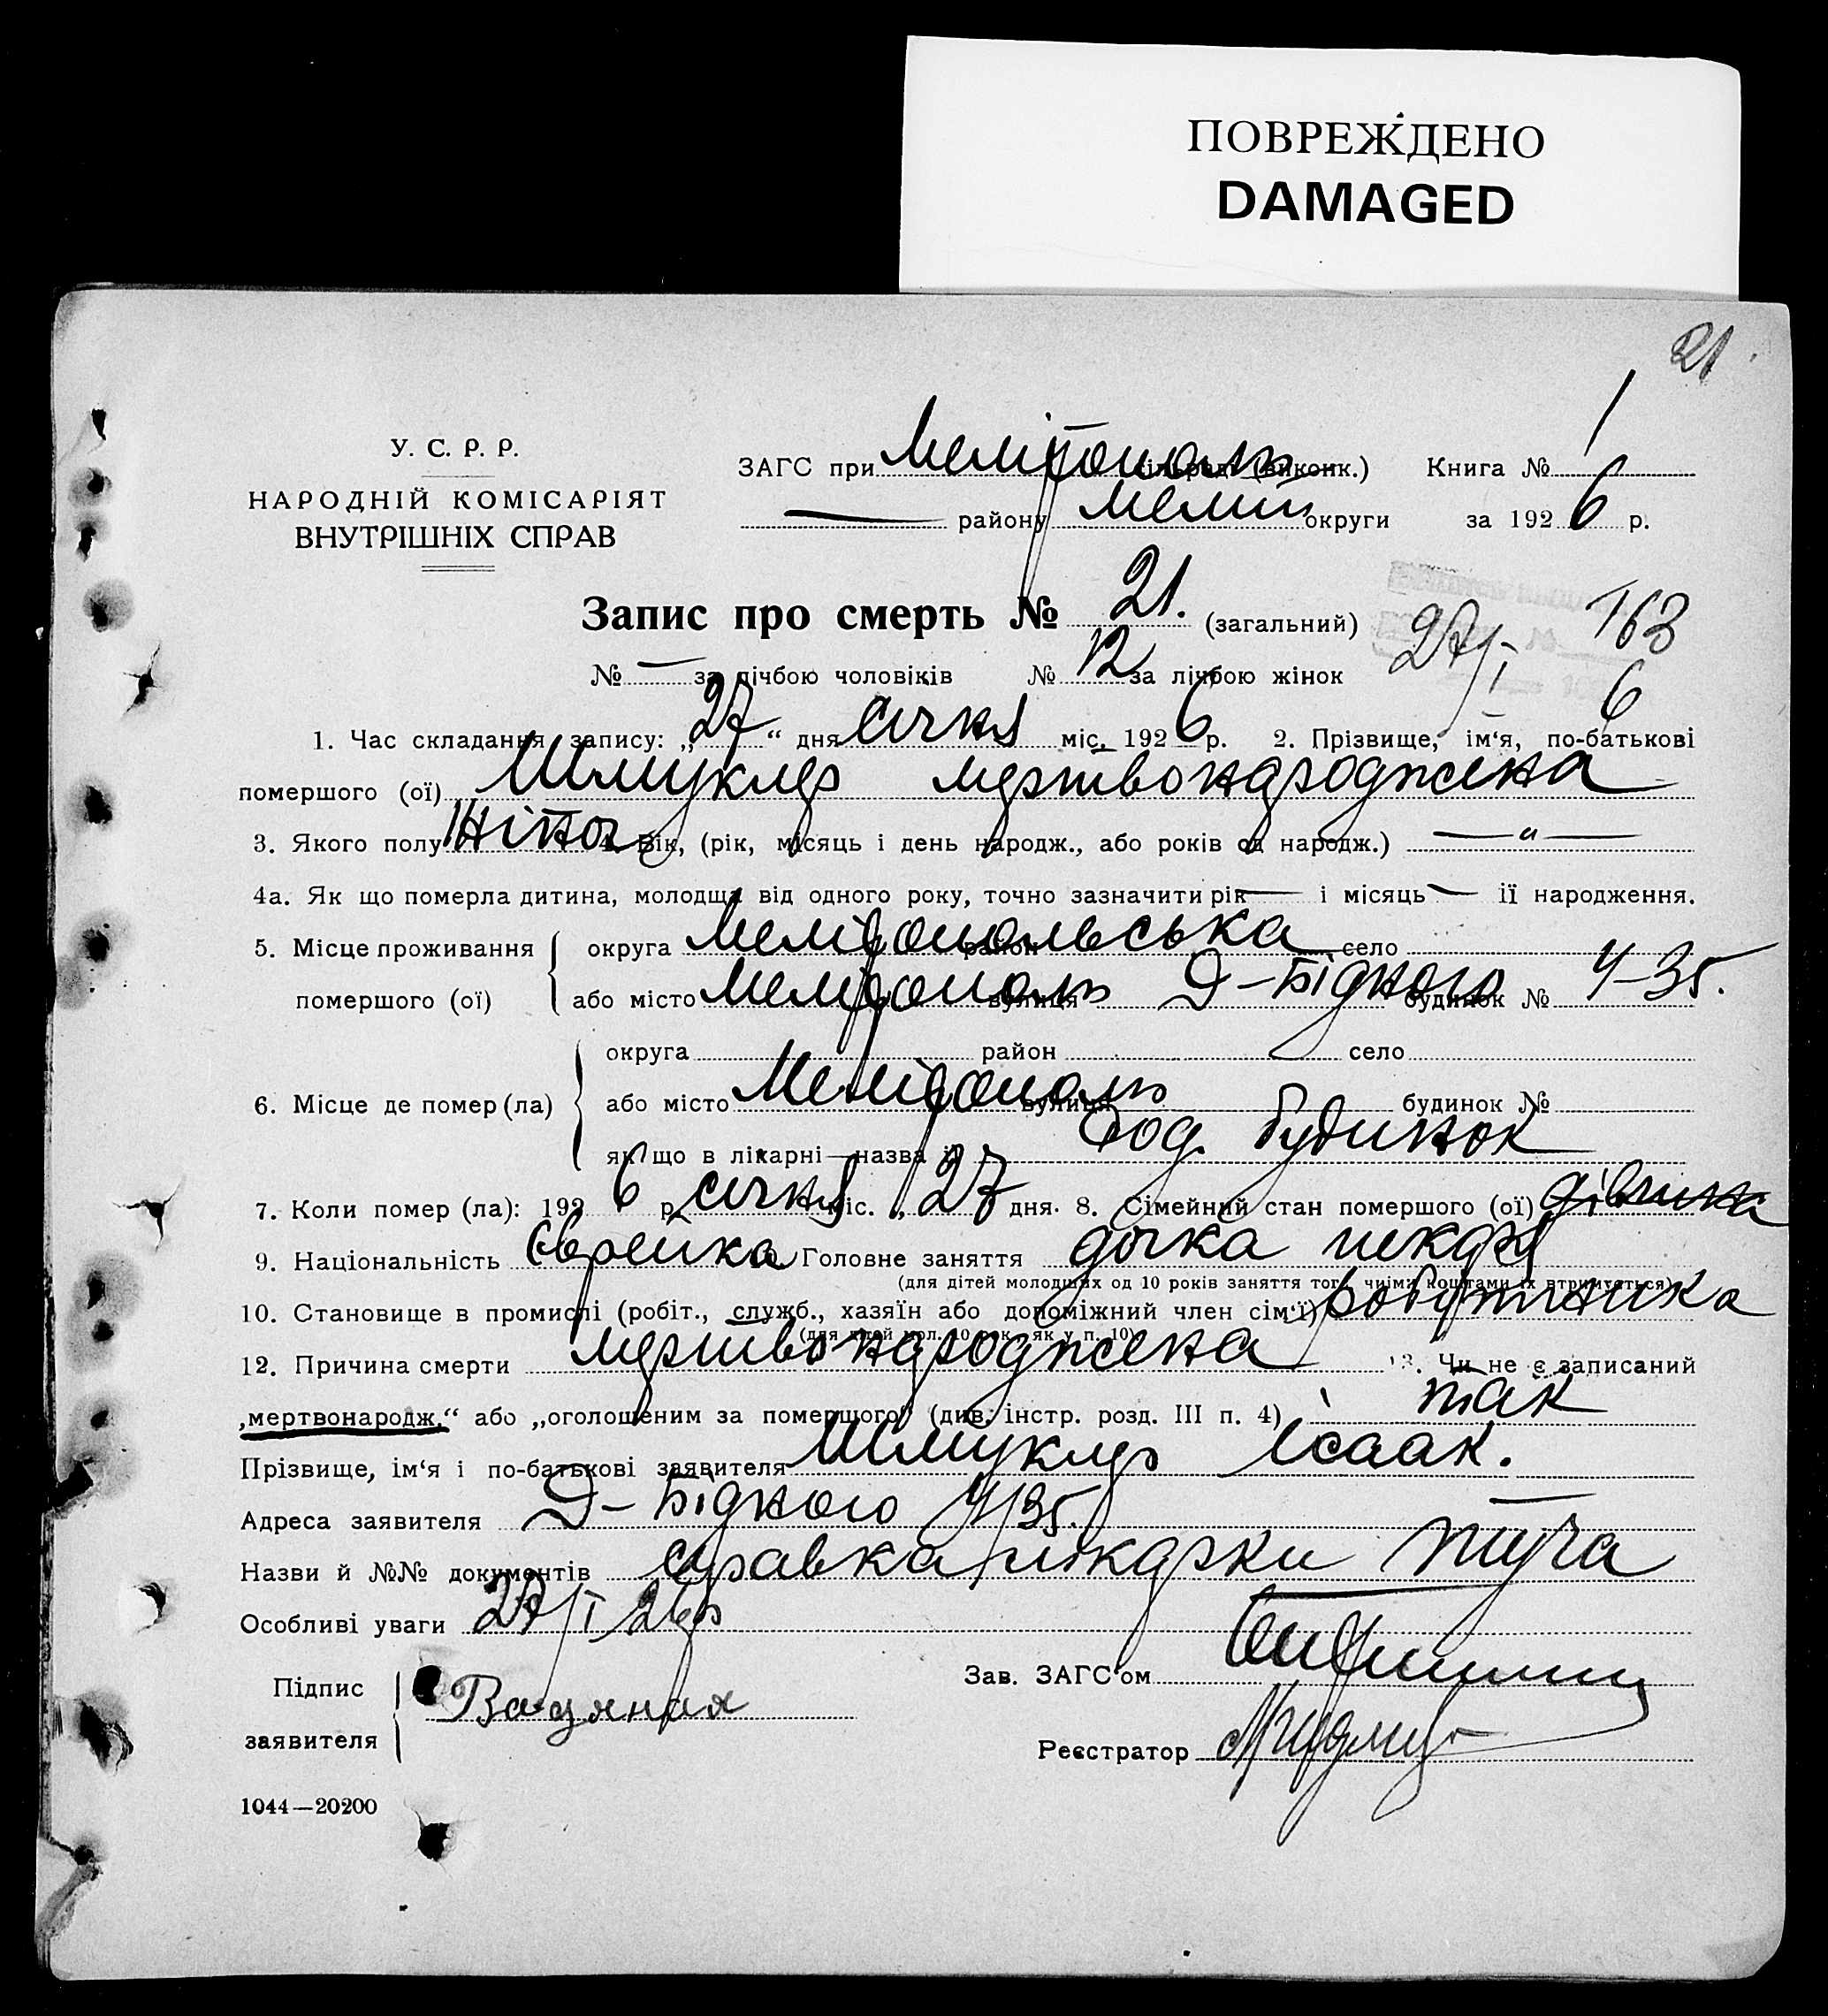 ПОВРЕЖДЕНО
DAMAGED
21
У. С. Р. Р.
НАРОДНІЙ КОМІСАРІЯТ
ВНУТРІШНІХ СПРАВ
ЗАГС при Мелітополь сільраді (виконк.) Книга № 1
— району Меліт округи за 1926 р.
Запис про смерть № 21. (загальний)
27/I 163
№ — за лічбою чоловіків № 12 за лічбою жінок
6
1. Час складання запису: „27“ дня січня міс. 1926 р. 2. Прізвище, ім‘я, по-батькові
помершого (ої) Шмуклер мертвонароджена
3. Якого полу жіноч 4. Вік, (рік, місяць і день народж., або років од народж.) — „ —
4а. Як що померла дитина, молодща від одного року, точно зазначити рік — і місяць — її народження.
5. Місце проживання помершого (ої)
округа Мелітопольська район село
або місто Мелітополь вулиця Д-Бідного будинок № 4-35.
6. Місце де помер (ла)
округа район село
або місто Мелітополь вулиця будинок №
як що в лікарні—назва її Род. будинок
7. Коли помер (ла): 1926 р. січня міс. „27 дня. 8. Сімейний стан помершого (ої) дівчина
9. Національність Єврейка Головне заняття дочка пекаря
(для дітей молодших од 10 років заняття того, чиїми коштами їх втримується)
10. Становище в промислі (робіт., служб., хазяїн або допоміжний член сім‘ї) робітника
(для дітей мол. 10 рок. як у п. 10)
12. Причина смерти мертвонароджена 13. Чи не є записаний
„мертвонародж.“ або „оголошеним за помершого“ (див. інстр. розд. III п. 4) так
Прізвище, ім‘я і по-батькові заявителя Шмуклер Ісаак.
Адреса заявителя Д-Бідного 4/35.
Назви й №№ документів справка лікарки
Особливі уваги 27/I 26 р
Підпис заявителя
Зав. ЗАГС‘ом
Реєстратор
1044—20200